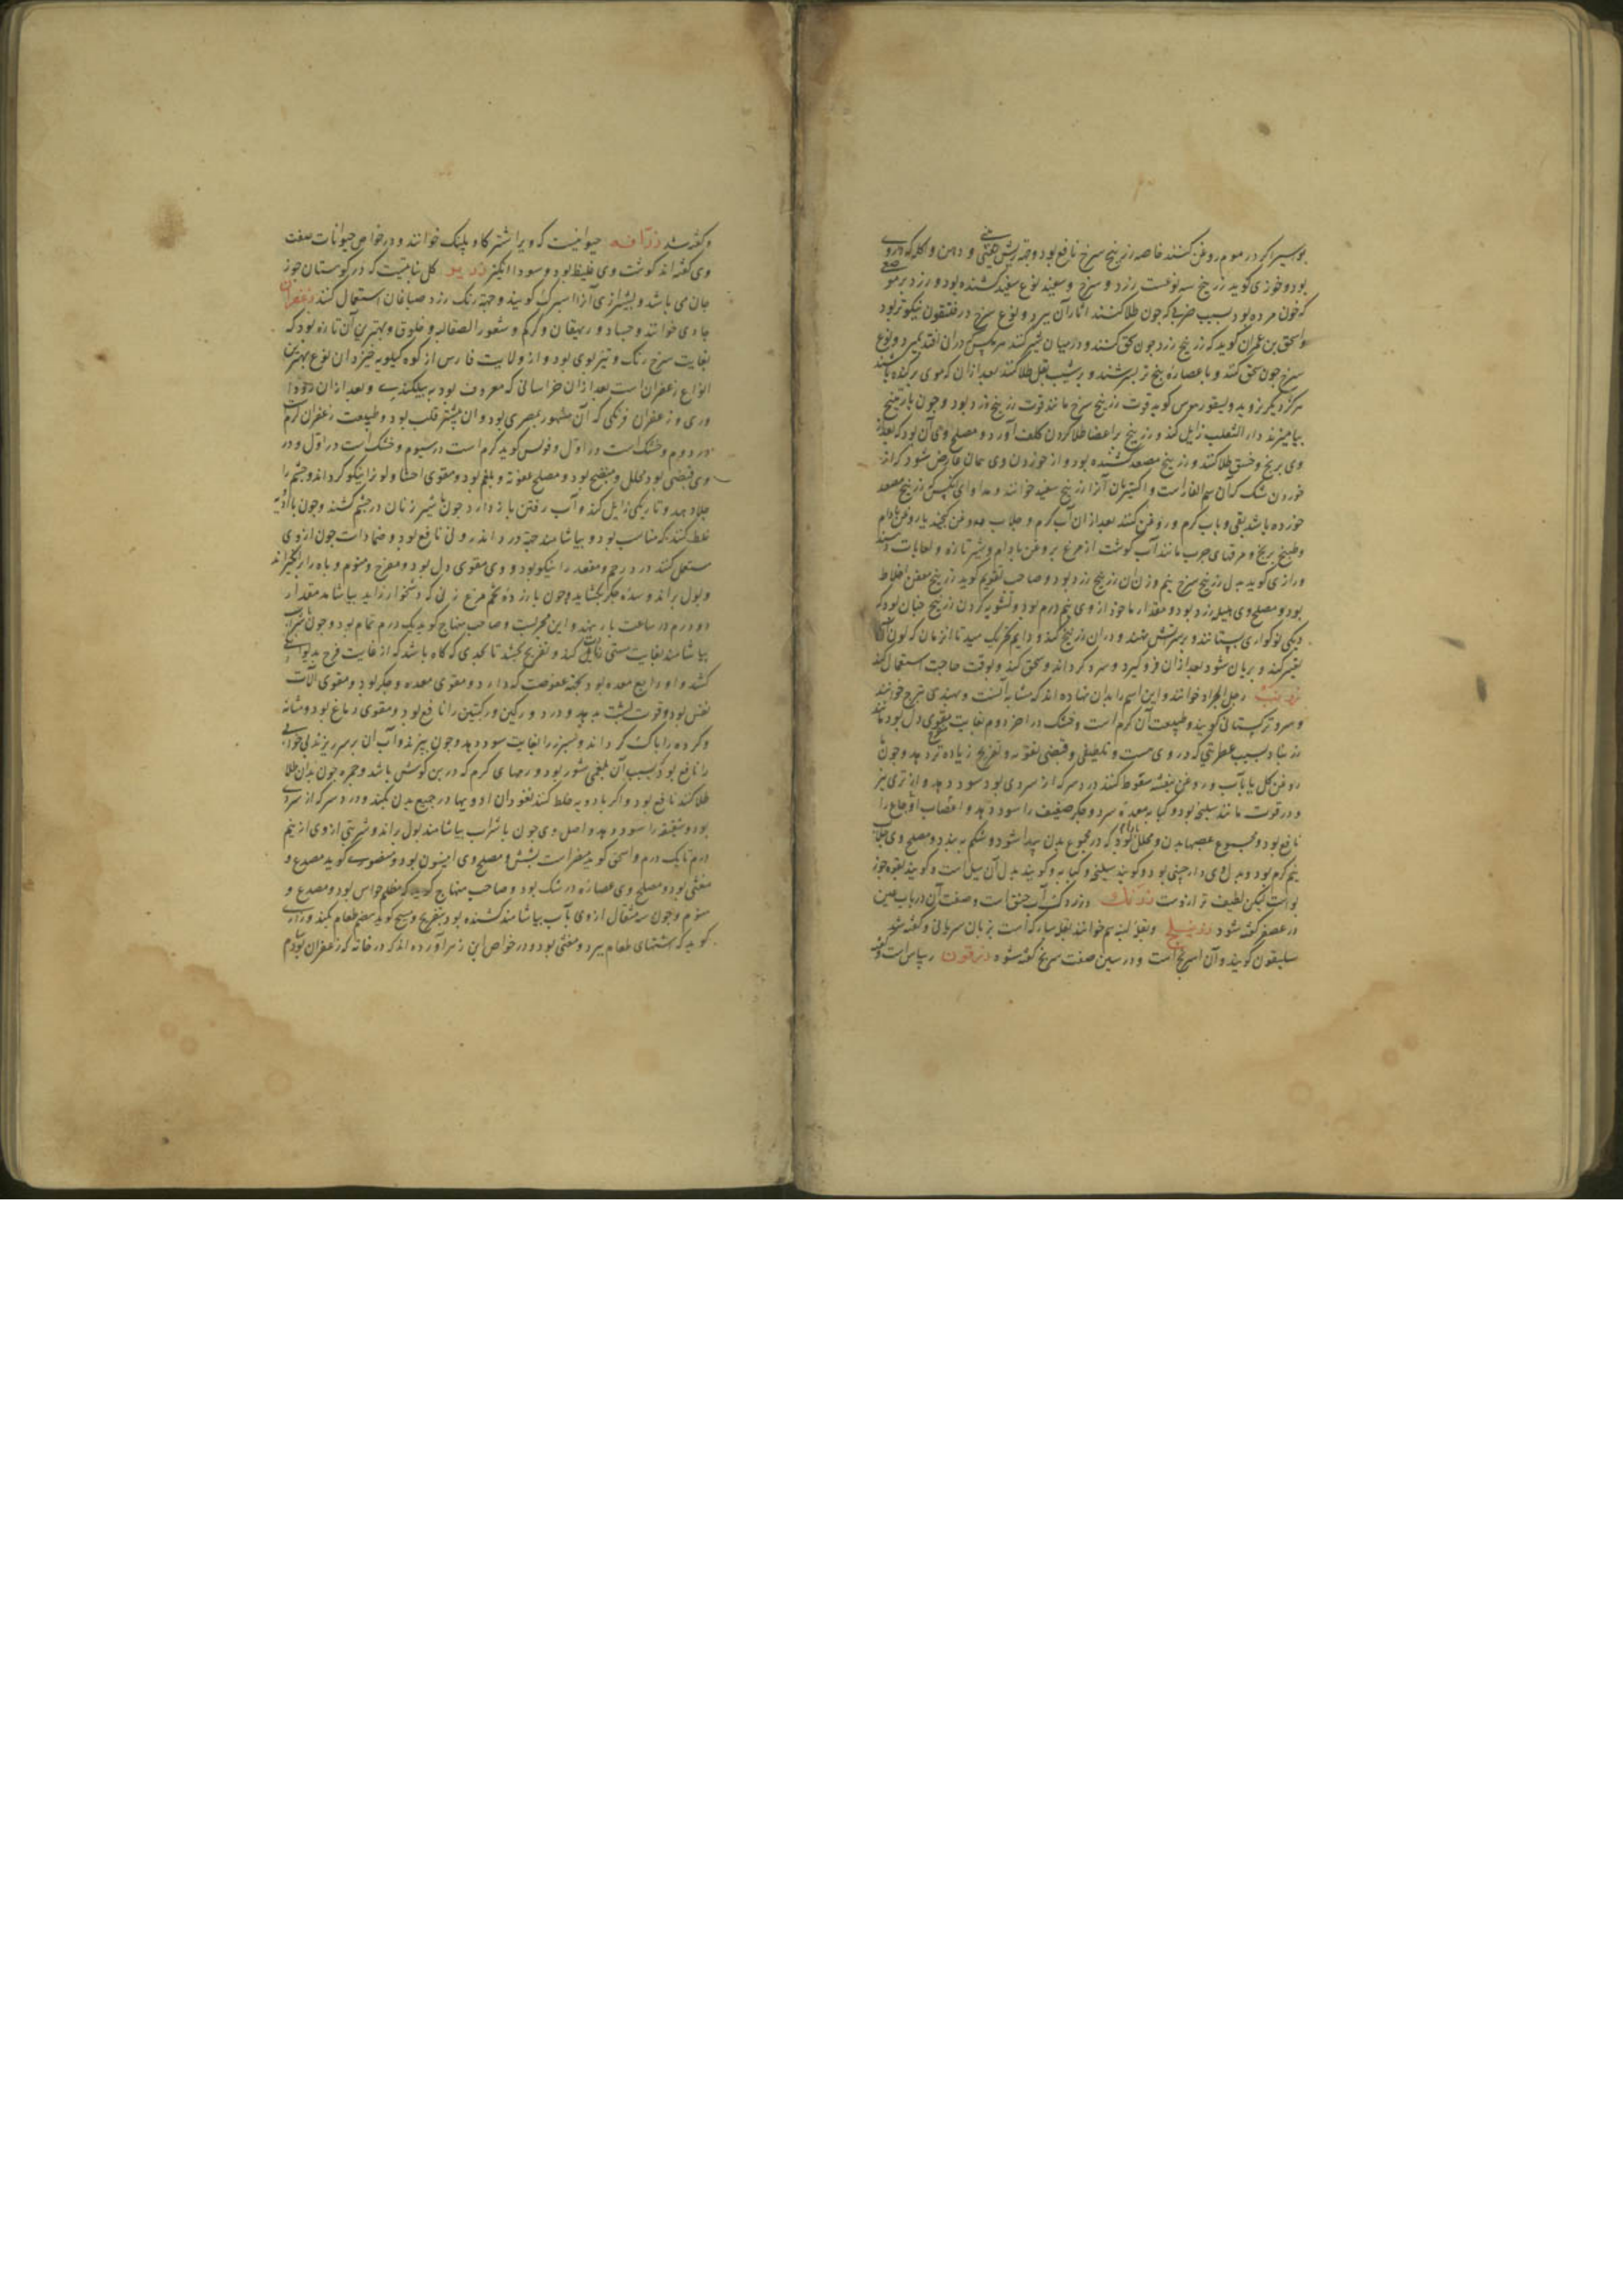 بواسیر اکر در موم روغن کنند خاصه زرنیخ سرخ نافع بود وجهة ریش بینی و دهن و اکله که در وی
بود وخوزی کوید زرنیخ سه نوعست زرد و سرخ و سفید نوع سفید کشنده بود و زرد بر موضعی
که خون مرده بود بسبب ضربی که جون طلا کنند اثار آن ببرد و نوع سرخ در نیکوتر بود
واسحق بن عمران کوید که زرنیخ زرد جون سحق کنند و در میان شیر کنند هر مکس دران افتد بمیرد و نوع
سرخ جون سحق کنند و با عصاره بنج تر بسرشند و بر شیب بغل طلا کنند بعد ازان که موی برکنده باشند
هرکز دیکر نروید و دیسقوریدوس کوید قوت زرنیخ سرخ مانند قوت زرنیخ زرد بود و جون با راتینج
بیامیزند داء الثعلب زایل کند و زرنیخ بر اعضا طلا کردن کلف آورد و مصلح وی آن بود که بعد از
وی برنج و خسق طلا کنند و زرنیخ مصعد کشنده بود و از خوردن وی همان عارض شود که از
خوردن شک که آن سم الفار است و اکسیریان آنرا زرنیخ سفید خوانند و مداوای کسی که زرنیخ مصعد
خورده باشد بقی و باب کرم و روغن کنند بعد ازان آب کرم و جلاب و روغن کنجد یا روغن بادام
وطبیخ برنج و مرقهای جرب مانند آب کوشت از مرغ بروغن بادام و شیر تازه و لعابات دهند
ورازی کوید بدل زرنیخ سرخ نیم وزن ان زرنیخ زرد بود و صاحب تقویم کوید زرنیخ معفن اخلاط
بود و مصلح وی هلیله زرد بود و مقدار ماخوذ از وی نیم درم بود و تشویه کردن زرنیخ جنان بود که
دیکی نو کواری بستانند و بر سر آتش نهند و دران زرنیخ کنند و دایم تحریک میدهند تا انزمان که لون آن
تغییر کند و بریان شود بعد ازان فرو کیرد و سرد کرداند و سحق کند و بوقت حاجت استعمال کند
زرنب رجل الجراد خوانند و این اسم را بدان نهاده اند که مشابه آنست و بهندی خوانند
و سرو ترکستانی کویند و طبیعت آن کرم است و خشک در اخر دوم بغایت مقوی دل بود مانند
زرنباد بسبب عطریتی که در وی هست و تلطیفی و قبضی و تفریح زیاده تر دهد و جون با
روغن کل یا باب و روغن بنفشه سعوط کنند درد سر که از سردی بود سود دهد و از تری نیز
و در قوت مانند سلیخه بود و کبابه معده سرد و جکر ضعیف را سود دهد و اعصاب اوجاع را
نافع بود و مجموع عصبهای بدن و محلل بادها بود که در مجموع بدن پیدا شود و شکم ببندد و مصلح وی جلاب
نیم کرم بود و بدل وی دارچینی بود و کویند سلیخه و کبابه و کویند بدل آن سیل است و کویند بقوه جوز
بوا است لیکن لطیف تر ازوست زردک وزردک آب خشق است و صفت آن در باب عین
در عصفر کفته شود زرنیلج وبقلة لینه هم خوانند بقله مبارکه است بزبان سریانی و کفته شد
سلیقون کویند و آن اسرنج است و در سین صفت سرنج کفته شود زرقون ریباس است و کفته
و کفته شد زرافه حیوانیست که ویرا شتر کاو پلنک خوانند و در خواص حیوانات صفت
وی کفته اند کوشت وی غلیظ بود و سودا انکیز زریر کل نباتیست که در کوهستان جوز
جان می باشد و بشیرازی آنرا اسپرک کویند و جهة رنک زرد صباغان استعمال کنند زعفران
جادی خوانند و جساد و ریهقان و کرکم و شعور الصقالبه و خلوق و بهترین آن تازه بود که
بغایت سرخ رنک و تیز بوی بود و از ولایت فارس از کوه کیلویه خیزد ان نوع بهترین
انواع زعفران است بعد ازان خراسانی که معروف بود به بیلکندی و بعد ازان
وری و زعفران فرنکی که آن مشهور بمصری بود و ان بیشتر قلب بود و طبیعت زعفران کرم است
در دوم و خشک است در اول و فولس کوید کرم است در سیوم و خشک است در اول و در
وی قبضی بود و محلل و منضج بود و مصلح عفونة و بلغم بود و مقوی احشا و لون را نیکو کرداند و جشم را
جلا دهد و تاریکی زایل کند و آب رفتن باز دارد جون باشیر زنان در جشم کشند و جون با ادویه
خلط کنند که مناسب بود و بیاشامند جهة درد اندرونی نافع بود و ضمادات جون از وی
مستعمل کنند درد رحم و مقعد را نیکو بود و وی مقوی دل بود و مفرح و منوم و باه را برانکیزاند
و بول براند و سده جکر بکشاید و جون با زرده تخم مرغ زنی که دشخوار زاید بیاشامد مقدار
دو درم در ساعت بار بنهد و این مجربست و صاحب منهاج کوید یک درم تمام بود و جون باشراب
بیاشامند بغایت مستی زیادتی کند و تفریح بخشد تا بحدی که کاه باشد که از غایت فرح بدیوانکی
کشد و او دابغ معده بود بجهة عفوصت که دارد و مقوی معده و جکر بود و مقوی آلات
نفس بود و قوت پشت بدهد و درد ورکین و رکبتین را نافع بود و مقوی دماغ بود و مثانه
و کرده را باک کرداند و سپرز را بغایت سود دهد و جون بپزند و آب ان بر سر ریزند بی خوابی
را نافع بود که بسبب آن بلغمی شور بود و ورمهای کرم که در بن کوش باشد و جمره جون بدان طلا
طلا کنند نافع بود و اکر با دویه خلط کنند نفوذ ان ادویها در جمیع بدن بکند و درد سر که از سردی
بود و شقیقه را سود دهد و اصل وی جون باشراب بیاشامند بول براند و شربتی از وی از نیم
درم تا یک درم و اسحق کوید مضر است بشش و مصلح وی انیسون بود و منصوری کوید مصدع و
مغثی بود و مصلح وی عصاره زرشک بود و صاحب منهاج کوید که مظلم حواس بود و مصدع و
منوم و جون سه مثقال از وی بآب بیاشامند کشنده بود بتفریح و مسیح کوید هضم طعام بکند و رازی
کوید که اشتهای طعام ببرد و مغثی بود و در خواص ابن زهر آورده اند که در خانه که زعفران بود سام